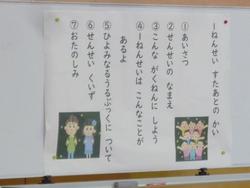 1ねんせい すたあとの かい
①あいさつ
②せんせいの なまえ
③こんな がくねんに しよう
④1ねんせいは こんなことが
あるよ
⑤ひよみなるうるぶっくに ついて
⑥せんせい くいず
⑦おたのしみ